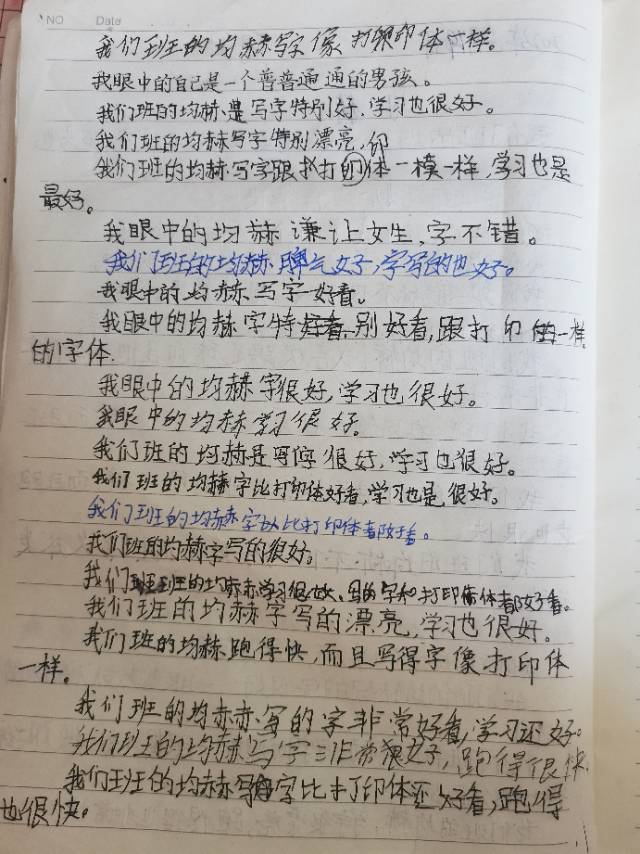 NO
Date
我们班的均赫写字像打印体一样。
我眼中的自己是一个普普通通的男孩。
我们班的均赫是写字特别好，学习也很好。
我们班的均赫写字特别漂亮，
我们班的均赫写字跟打印体一模一样，学习也是
最好。
我眼中的均赫谦让女生，字不错。
我们班的均赫脾气好，字写的也好。
我眼中的均赫写字好看。
我眼中的均赫字特别好看，跟打印的一样
的字体.
我眼中的均赫字很好，学习也很好。
我眼中的均赫学习很好。
我们班的均赫是写字很好，学习也很好。
我们班的均赫字比打印体好看，学习也是很好。
我们班的均赫字比打印体都好看。
我们班的均赫字写的很好。
我们班的均赫学习很好，写的字和打印体都好看。
我们班的均赫字写的漂亮，学习也很好。
我们班的均赫跑得快，而且写得字像打印体
一样。
我们班的均赫写的字非常好看，学习还好。
我们班的均赫写字非常好，跑得很快.
我们班的均赫写字比打印体还好看，跑得
也很快。